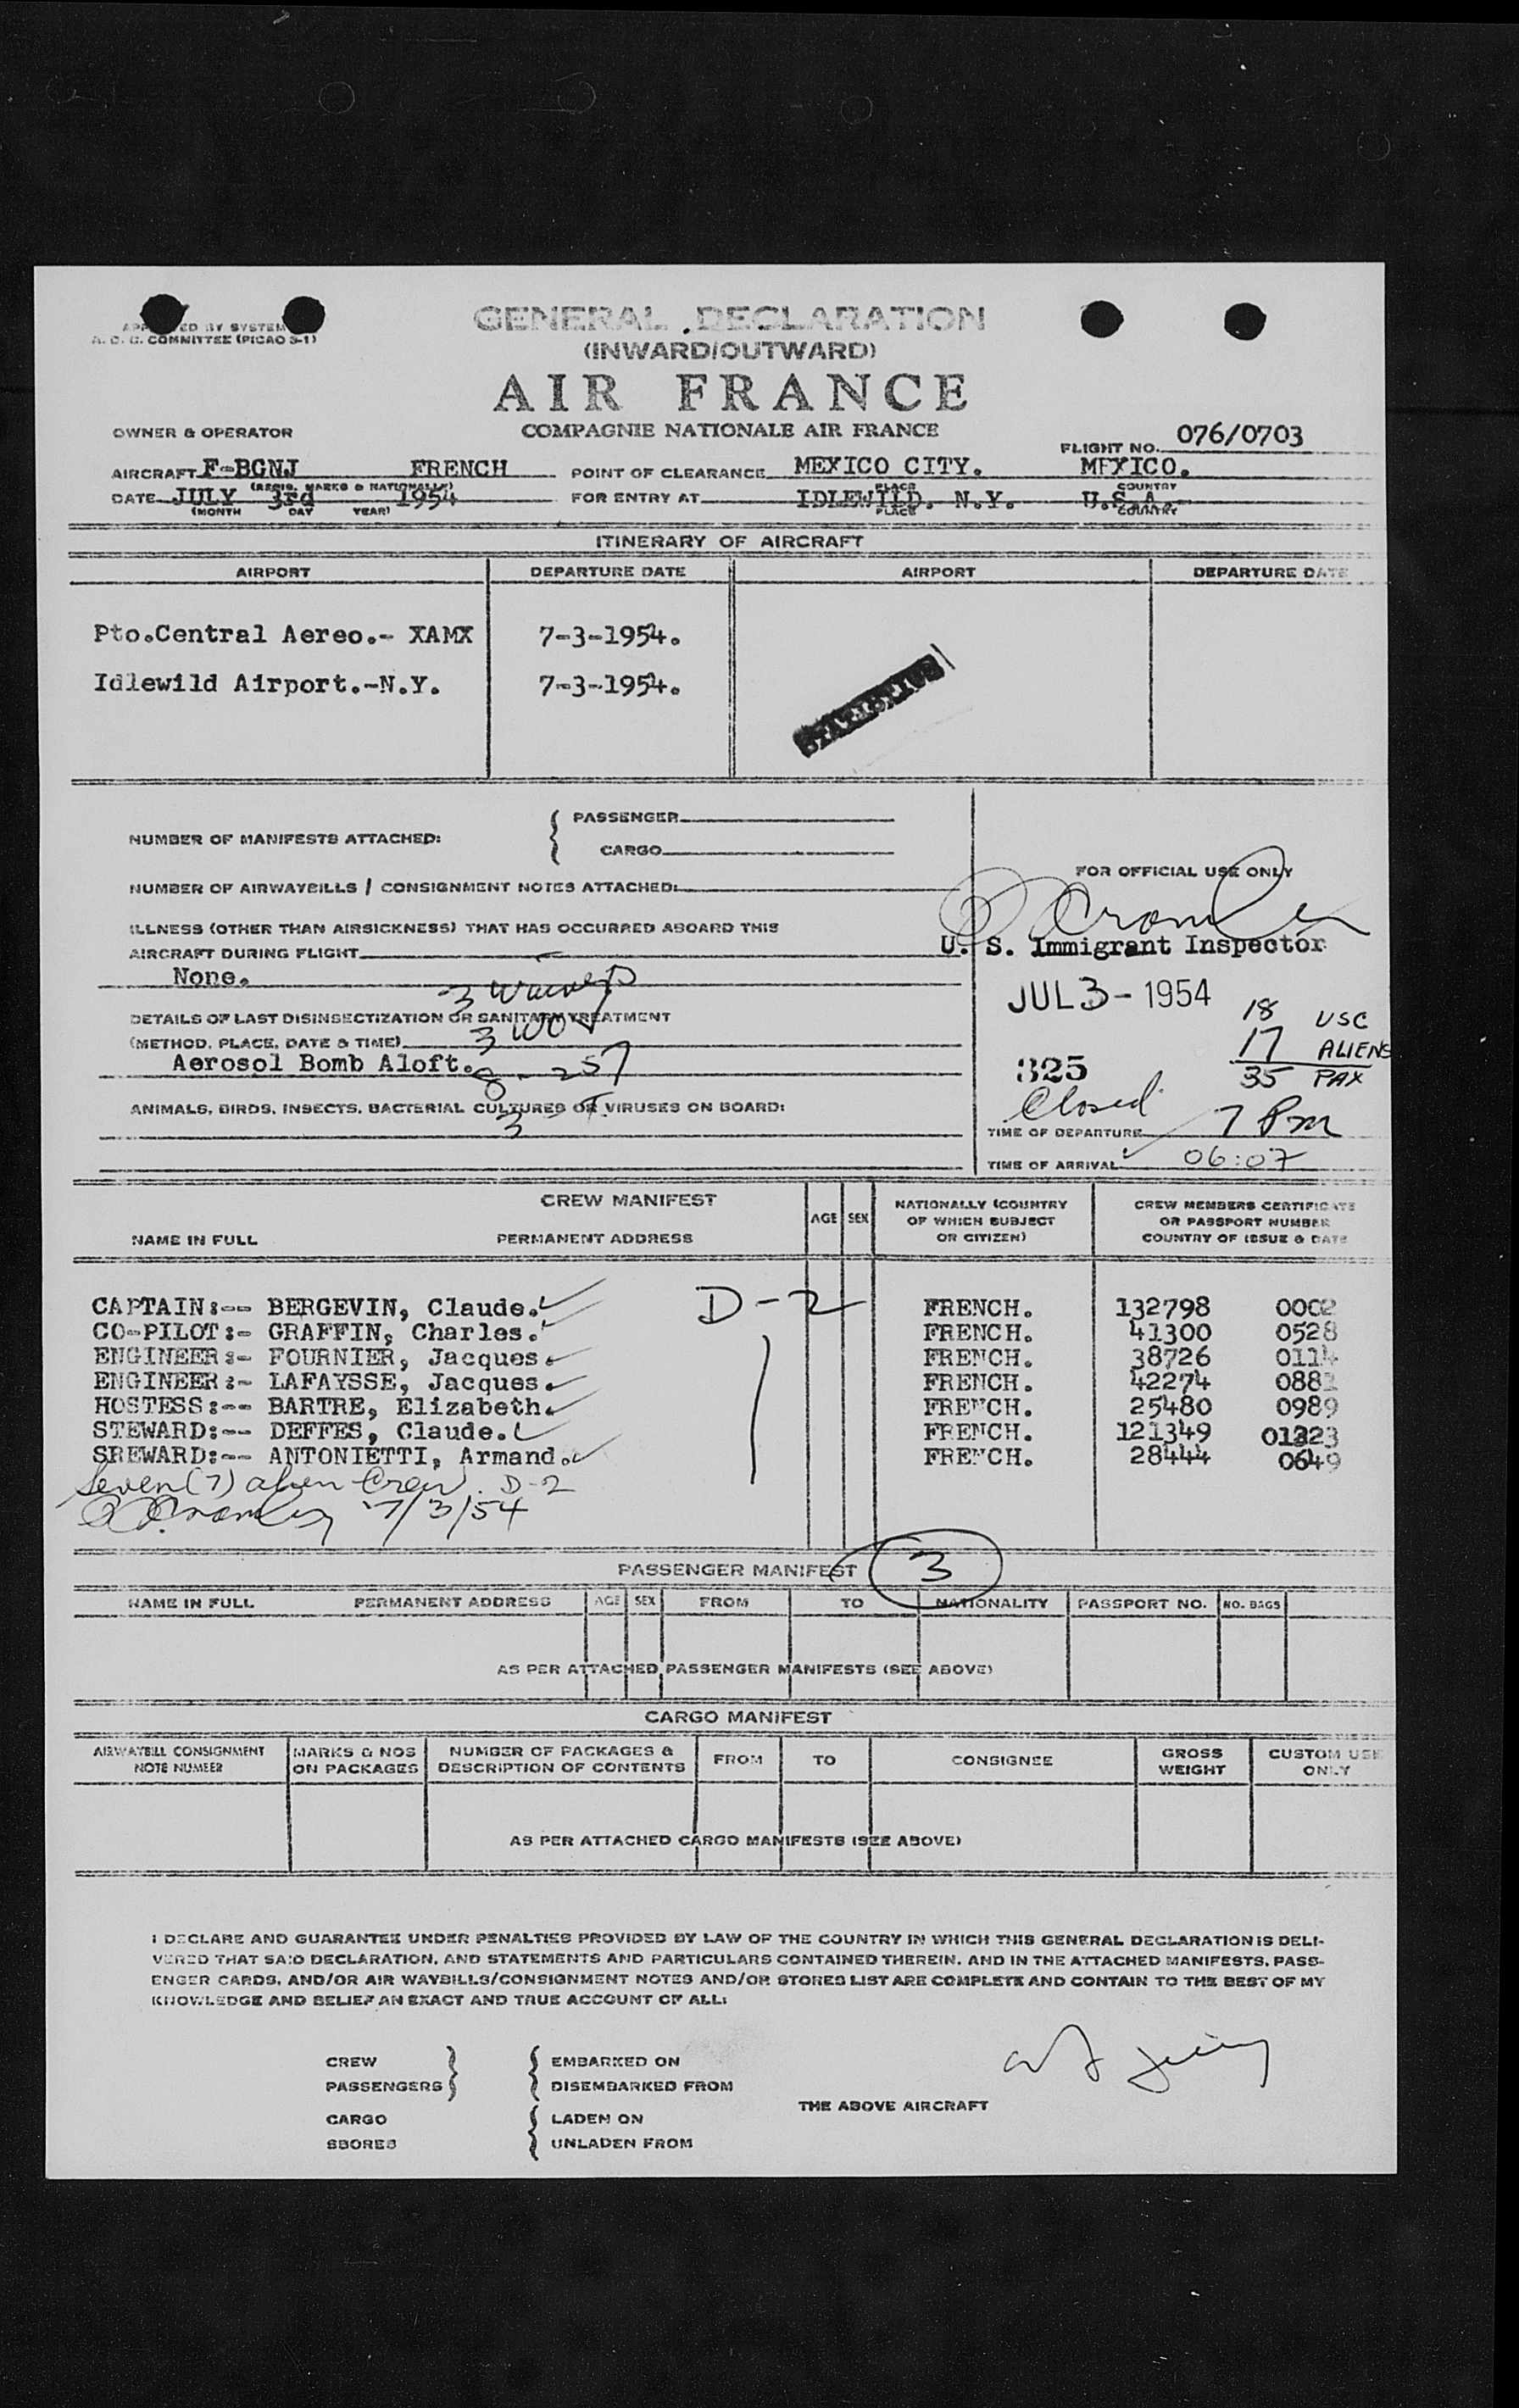 GENERAL DECLARATION
A. C. C. COMMITTEE (PICAO S-1)
(INWARD/OUTWARD)
AIR FRANCE
OWNER & OPERATOR
COMPAGNIE NATIONALE AIR FRANCE
FLIGHT NO. 076/0703
AIRCRAFT F-BGNJ FRENCH POINT OF CLEARANCE MEXICO CITY. MEXICO.
(REGIS. MARKS & NATIONALLY) PLACE COUNTRY
DATE JULY 3rd 1954 FOR ENTRY AT IDLEWILD. N.Y. U.S.A.
(MONTH DAY YEAR) PLACE COUNTRY
ITINERARY OF AIRCRAFT
AIRPORT DEPARTURE DATE AIRPORT DEPARTURE DATE
Pto.Central Aereo.- XAMX 7-3-1954.
Idlewild Airport.-N.Y. 7-3-1954.
NUMBER OF MANIFESTS ATTACHED: PASSENGER
CARGO
FOR OFFICIAL USE ONLY
NUMBER OF AIRWAYBILLS / CONSIGNMENT NOTES ATTACHED:
ILLNESS (OTHER THAN AIRSICKNESS) THAT HAS OCCURRED ABOARD THIS
AIRCRAFT DURING FLIGHT
U. S. Immigrant Inspector
None.
JUL 3 - 1954
3
DETAILS OF LAST DISINSECTIZATION OR SANITARY TREATMENT
18 USC
(METHOD, PLACE, DATE & TIME) 3
17 ALIENS
Aerosol Bomb Aloft. 8 - 257
325 35 PAX
Closed
ANIMALS, BIRDS, INSECTS, BACTERIAL CULTURES OR VIRUSES ON BOARD:
3
TIME OF DEPARTURE 7 Pm
TIME OF ARRIVAL 06:07
CREW MANIFEST
NAME IN FULL PERMANENT ADDRESS AGE SEX NATIONALLY (COUNTRY OF WHICH SUBJECT OR CITIZEN) CREW MEMBERS CERTIFICATE OR PASSPORT NUMBER COUNTRY OF ISSUE & DATE
CAPTAIN:-- BERGEVIN, Claude. D-2 FRENCH. 132798 0002
CO-PILOT:- GRAFFIN, Charles. FRENCH. 41300 0528
ENGINEER:- FOURNIER, Jacques. FRENCH. 38726 0114
ENGINEER:- LAFAYSSE, Jacques. FRENCH. 42274
HOSTESS:-- BARTRE, Elizabeth. FRENCH. 25480 0989
STEWARD:-- DEFFES, Claude. FRENCH. 121349 01323
SREWARD:-- ANTONIETTI, Armand. FRENCH. 28444 0649
Seven (7) alien Crew. D-2
7/3/54
PASSENGER MANIFEST 3
NAME IN FULL PERMANENT ADDRESS AGE SEX FROM TO NATIONALITY PASSPORT NO. NO. BAGS
AS PER ATTACHED PASSENGER MANIFESTS (SEE ABOVE)
CARGO MANIFEST
AIRWAYBILL CONSIGNMENT NOTE NUMBER MARKS & NOS ON PACKAGES NUMBER OF PACKAGES & DESCRIPTION OF CONTENTS FROM TO CONSIGNEE GROSS WEIGHT CUSTOM USE ONLY
AS PER ATTACHED CARGO MANIFESTS (SEE ABOVE)
I DECLARE AND GUARANTEE UNDER PENALTIES PROVIDED BY LAW OF THE COUNTRY IN WHICH THIS GENERAL DECLARATION IS DELI-
VERED THAT SAID DECLARATION, AND STATEMENTS AND PARTICULARS CONTAINED THEREIN, AND IN THE ATTACHED MANIFESTS, PASS-
ENGER CARDS, AND/OR AIR WAYBILLS/CONSIGNMENT NOTES AND/OR STORES LIST ARE COMPLETE AND CONTAIN TO THE BEST OF MY
KNOWLEDGE AND BELIEF AN EXACT AND TRUE ACCOUNT OF ALL:
CREW EMBARKED ON
PASSENGERS DISEMBARKED FROM
THE ABOVE AIRCRAFT
CARGO LADEN ON
SBORES UNLADEN FROM